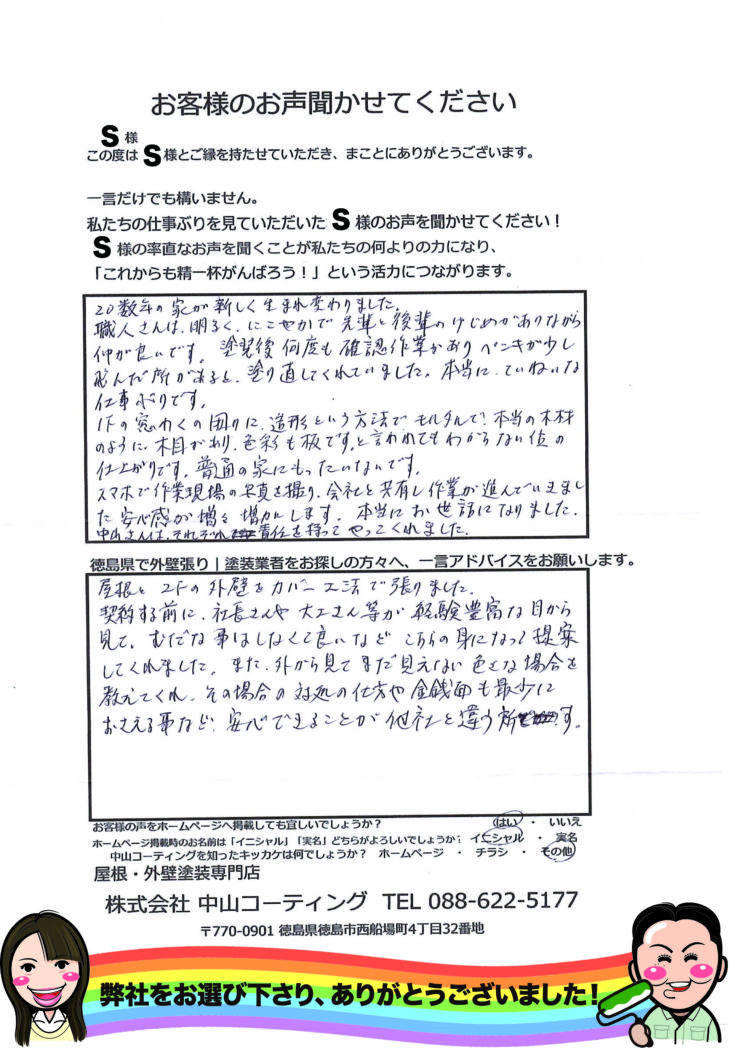 お客様のお声聞かせてください
S 様
この度は S 様とご縁を持たせていただき、まことにありがとうございます。
一言だけでも構いません。
私たちの仕事ぶりを見ていただいた S 様のお声を聞かせてください！
S 様の率直なお声を聞くことが私たちの何よりの力になり、
「これからも精一杯がんばろう！」という活力につながります。
20数年の家が新しく生まれ変わりました。
職人さんは、明るく、にこやかで先輩と後輩のけじめがありながら
仲が良いです。塗装後何度も確認作業があり ペンキが少し
飛んだ所があると、塗り直してくれていました。本当に、ていねいな
仕事ぶりです。
1Fの窓わくの回りに、造形という方法でモルタルで、本当の木材
のように、木目があり、色彩も板です。と言われてもわからない位の
仕上がりです。普通の家にもったいないです。
スマホで作業現場の写真を撮り、会社と共有し作業が進んでいきまし
た 安心感が増々増加します。本当にお世話になりました。
中山さんは、それぞれ 責任を持ってやってくれました。
徳島県で外壁張り｜塗装業者をお探しの方々へ、一言アドバイスをお願いします。
屋根と 2Fの外壁をカバー工法で張りました。
契約する前に、社長さんや大工さん等が 経験豊富な目から
見て、むだな事はしなくて良いなど こちらの身になって提案
してくれました。また、外から見てまだ見えない色々な場合を
教えてくれ、その場合の対処の仕方や金銭面も最少に
おさえる事など、安心できることが他社と違う所 です。
お客様の声をホームページへ掲載しても宜しいでしょうか？ はい ・ いいえ
ホームページ掲載時のお名前は「イニシャル」「実名」どちらがよろしいでしょうか？ イニシャル ・ 実名
中山コーティングを知ったキッカケは何でしょうか？ ホームページ ・ チラシ ・ その他
屋根・外壁塗装専門店
株式会社 中山コーティング TEL 088-622-5177
〒770-0901 徳島県徳島市西船場町4丁目32番地
弊社をお選び下さり、ありがとうございました！